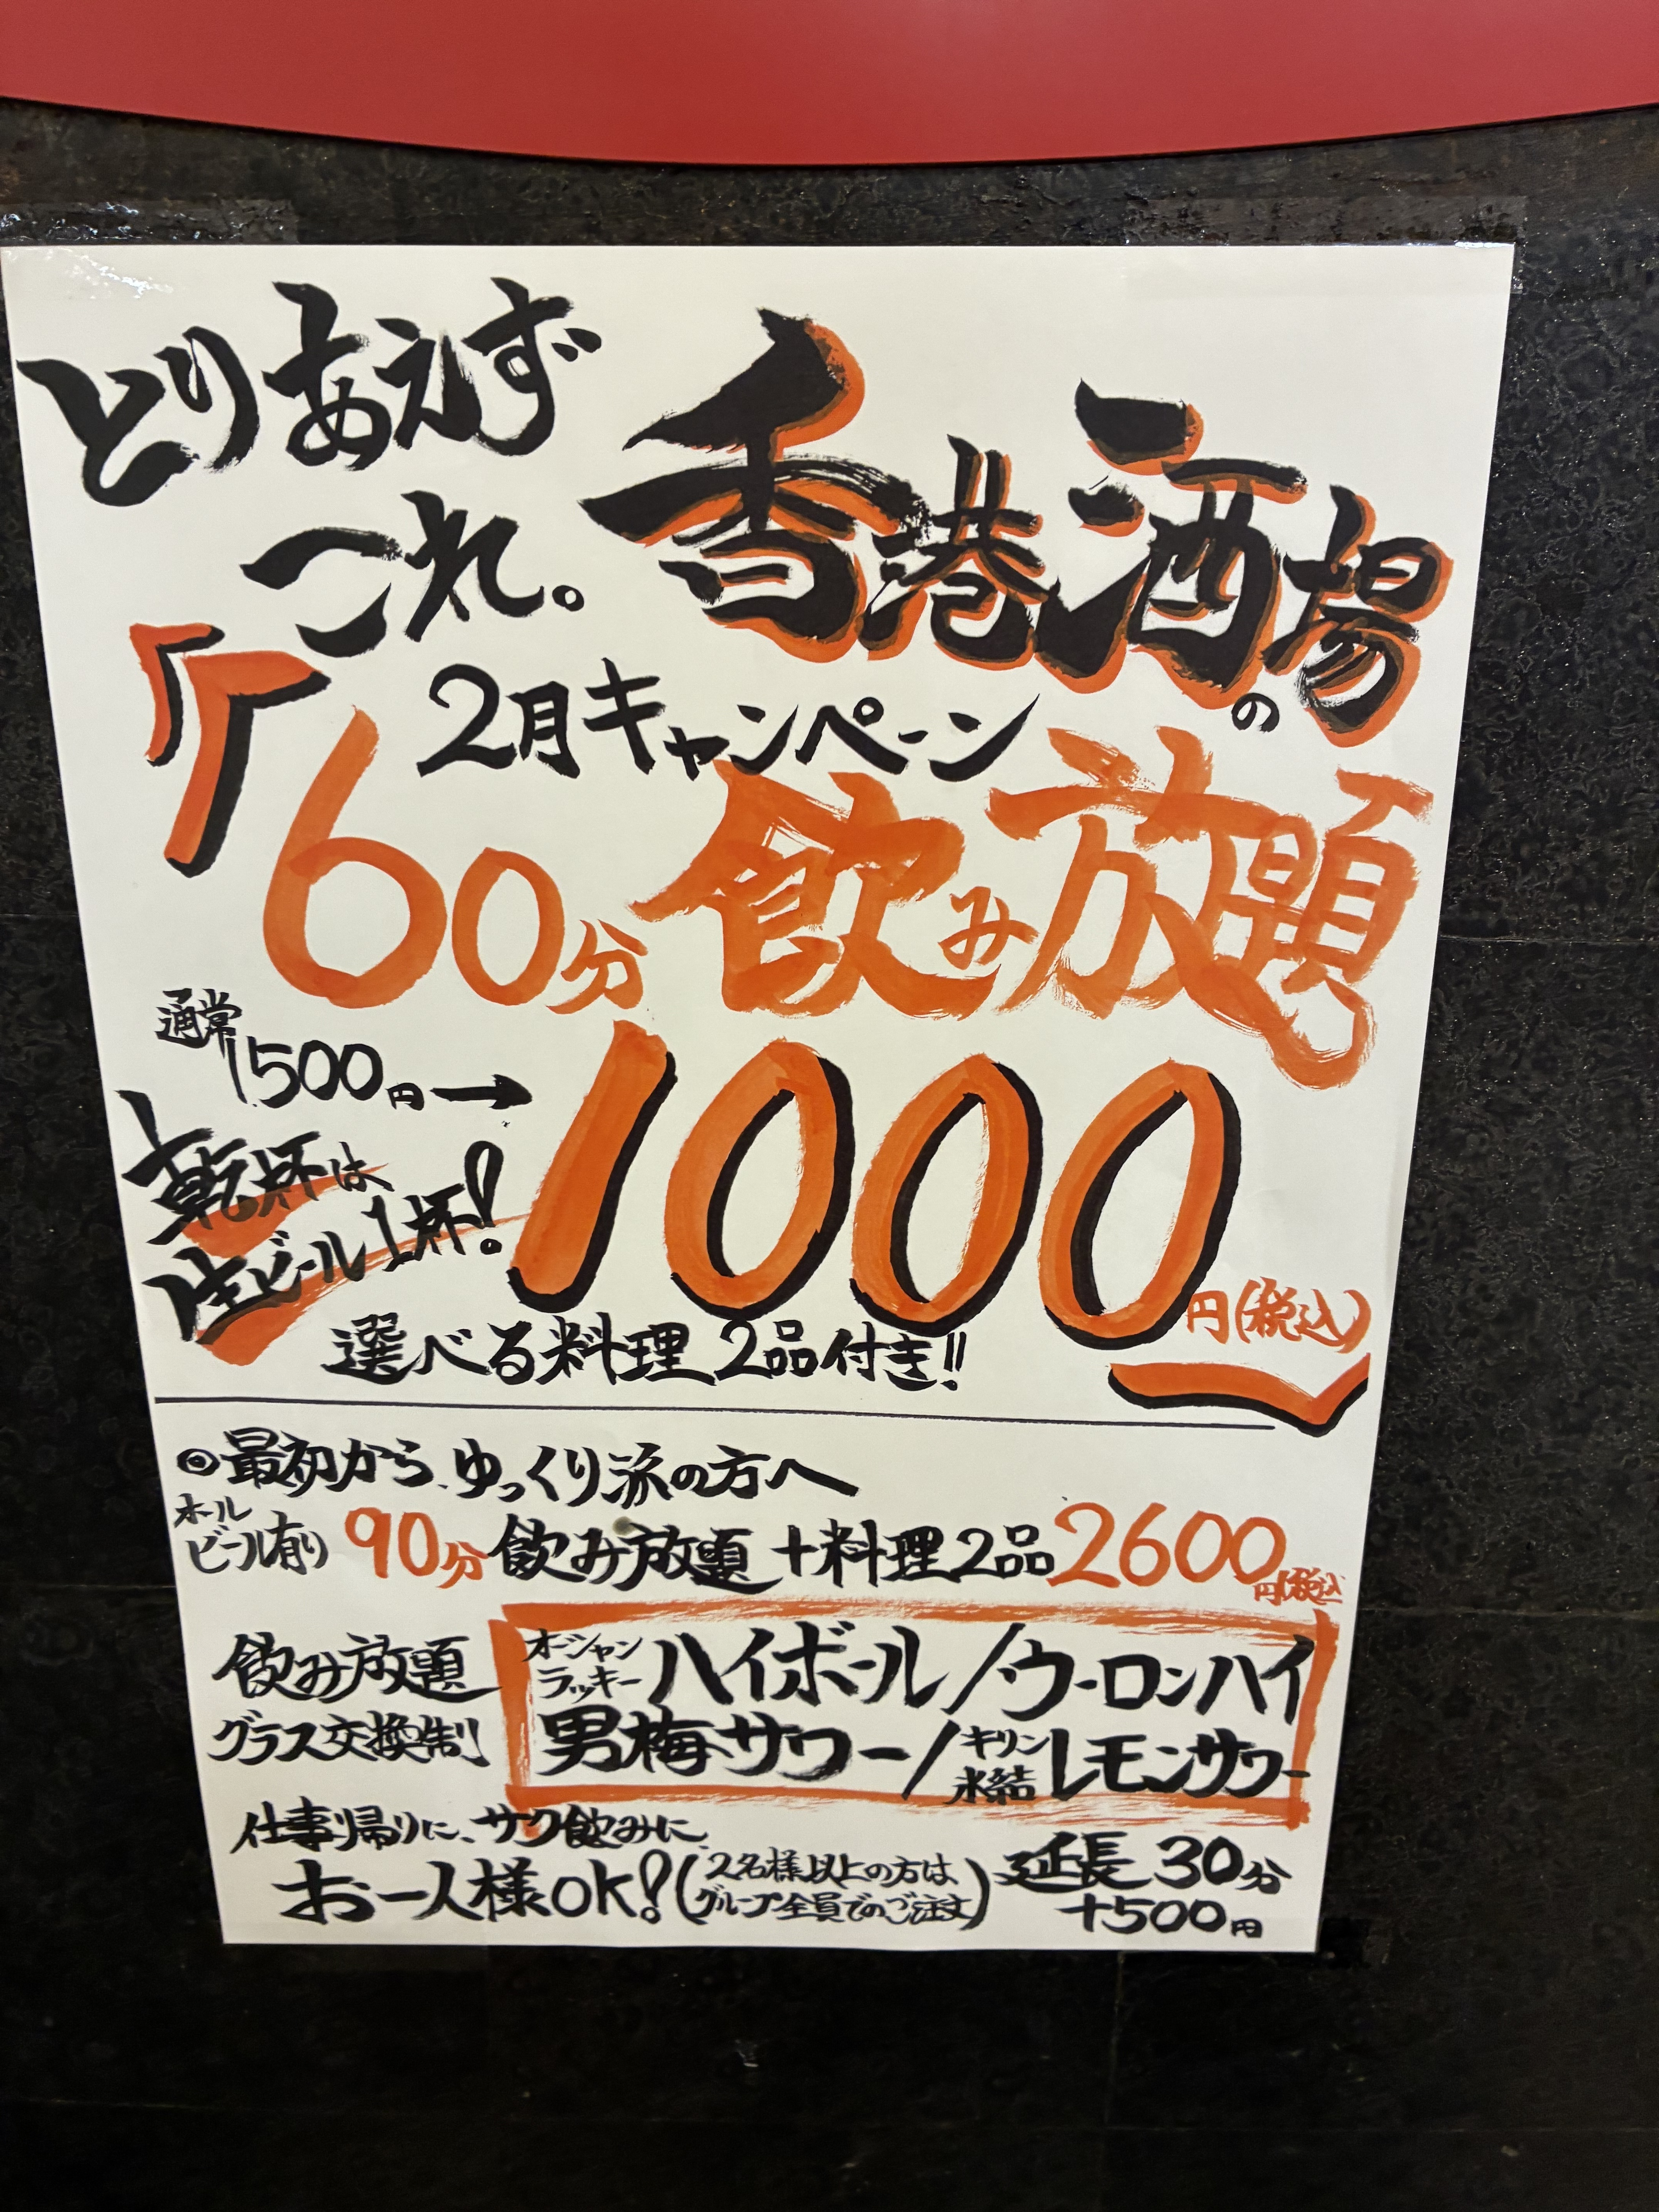 とりあえず
これ。
香港酒場の
2月キャンペーン
『60分飲み放題
通常1500円→1000円(税込)』
乾杯は
生ビール1杯!
選べる料理2品付き!!
◎最初から、ゆっくり派の方へ
ホール
ビール有り 90分飲み放題+料理2品2600円(税込
飲み放題
グラス交換制
オーシャン
ラッキー ハイボール/ウーロンハイ
男梅サワー/キリン
氷結 レモンサワー
仕事帰りに、サク飲みに
お一人様OK!(2名様以上の方は
グループ全員でのご注文)
延長30分
+500円